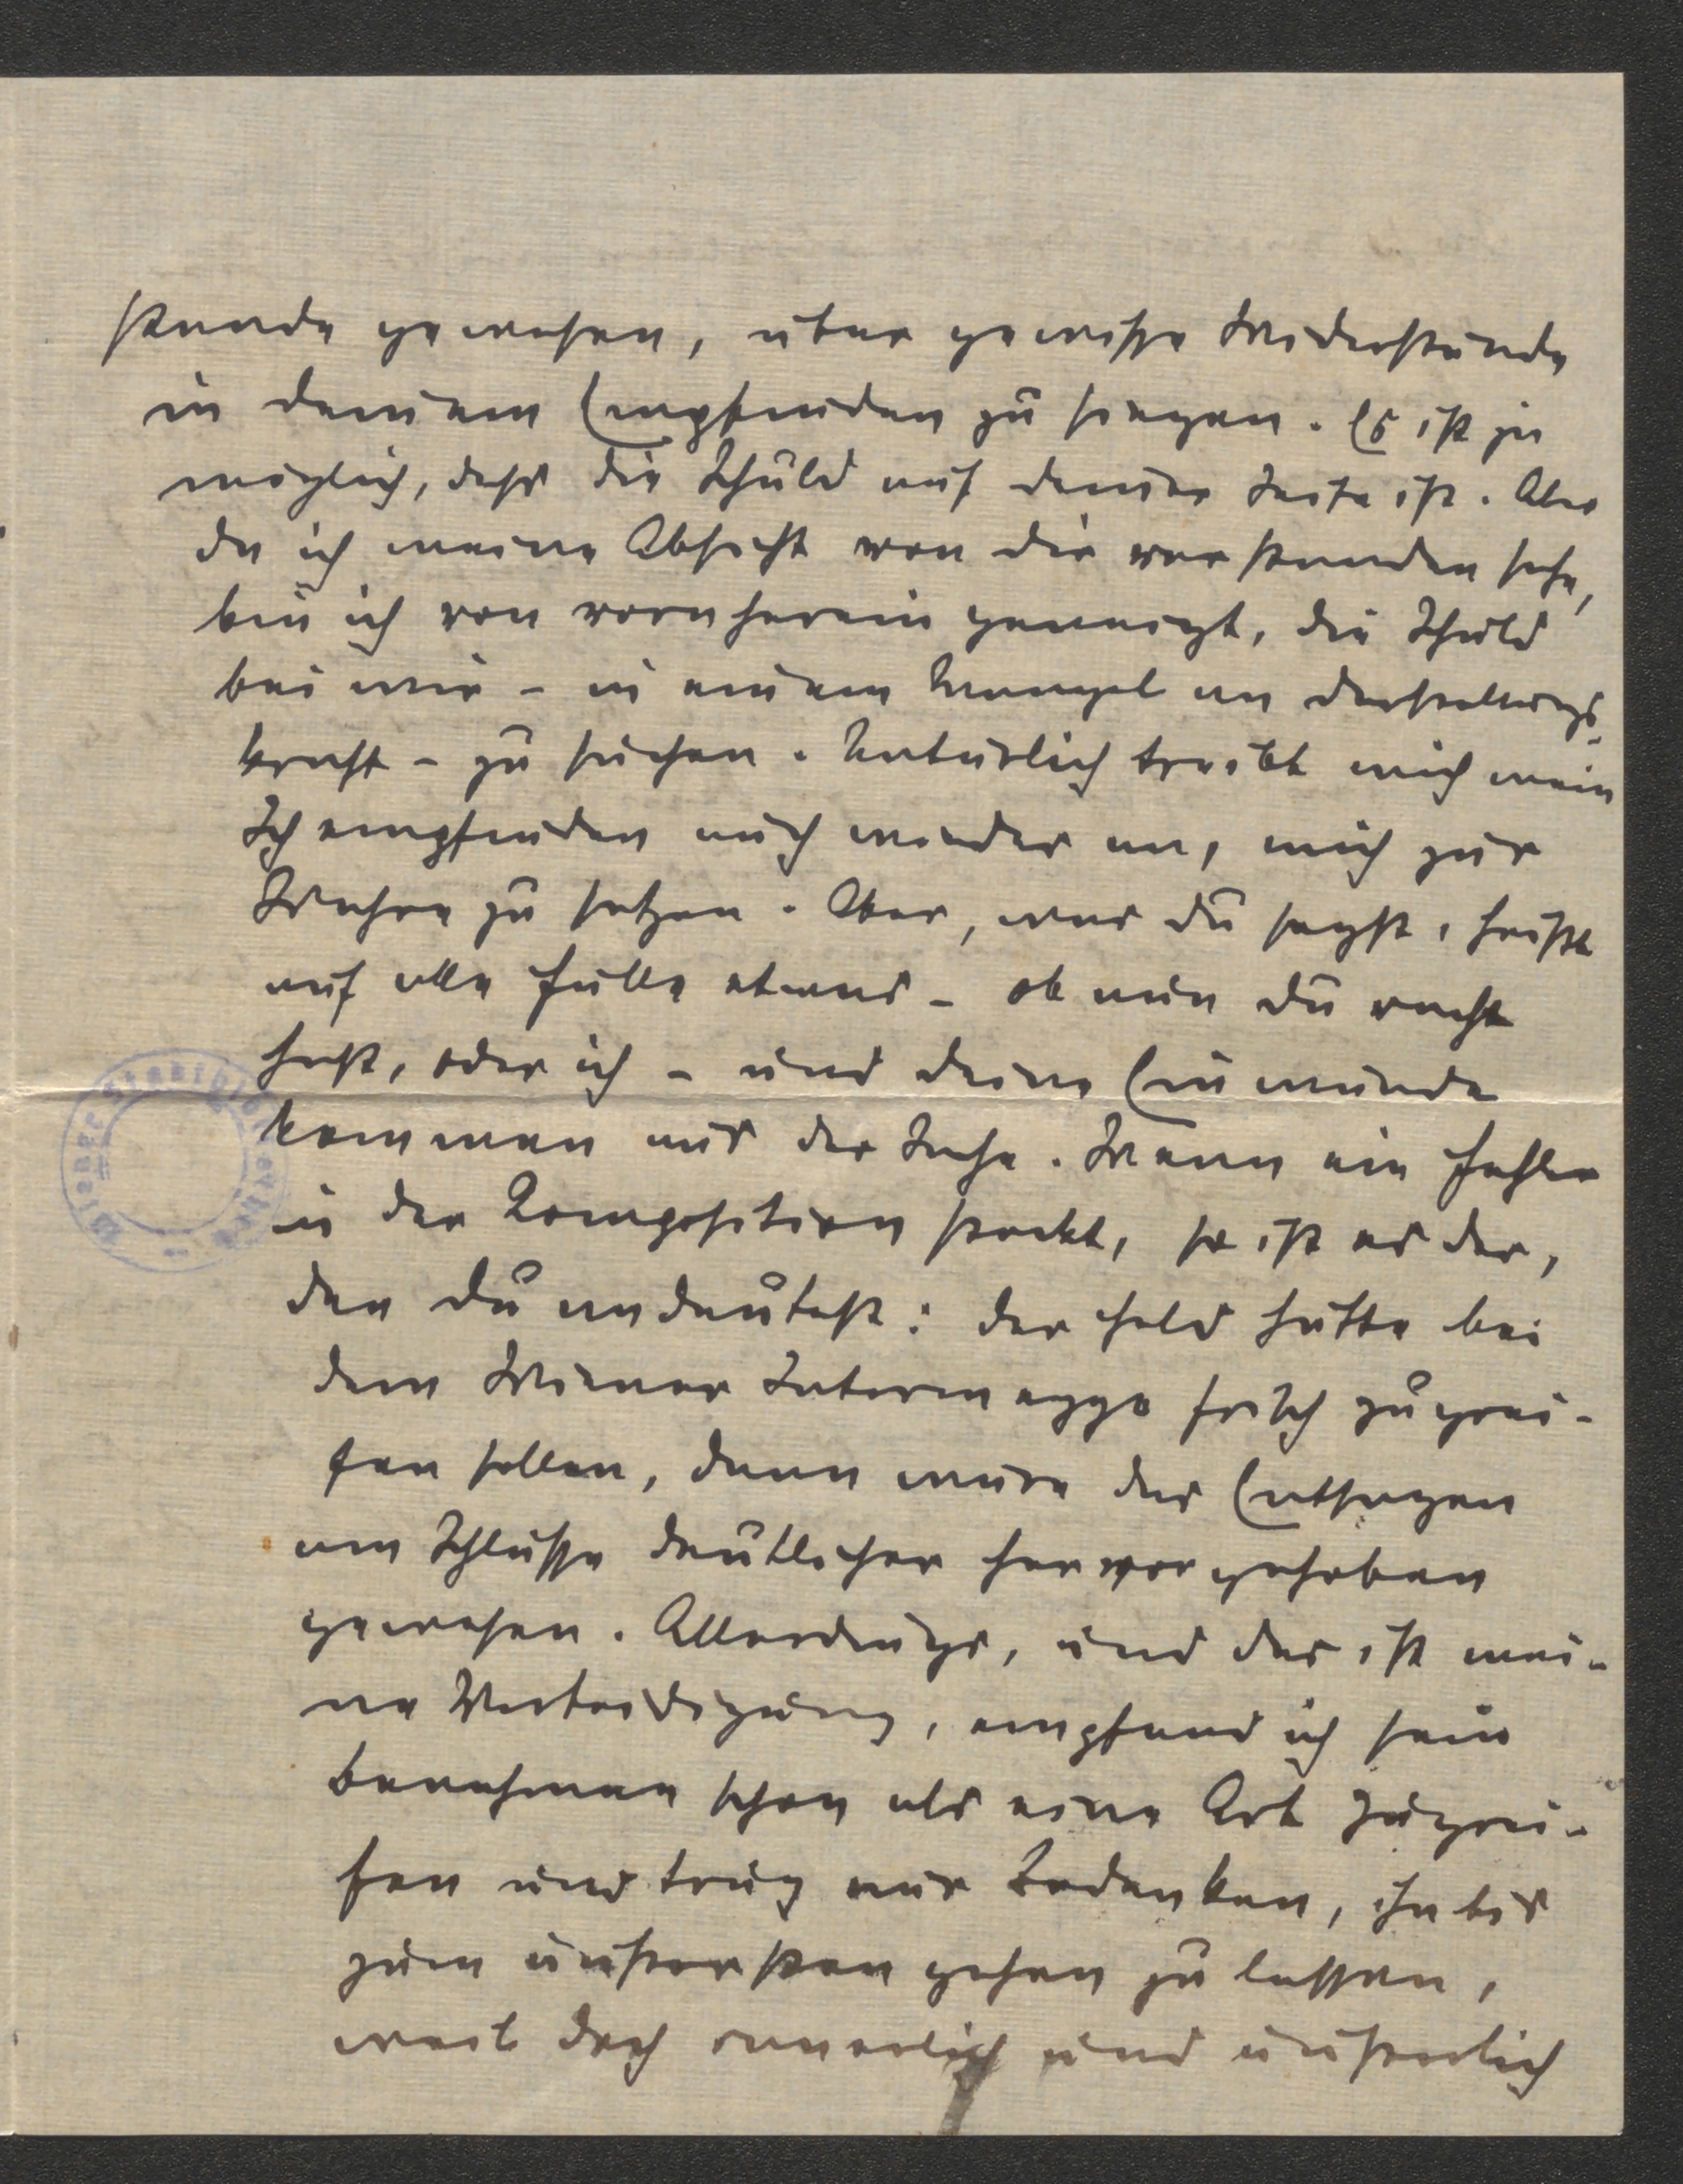 stande gewesen, über gewisse Widerstände
in deinem Empfinden zu siegen. Es ist ja
möglich, dass die Schuld auf deiner Seite ist. Aber
da ich meine Absicht von dir verstanden sehe,
bin ich von vornherein geneigt, die Schuld
bei mir – in einem Mangel an Darstellungs-
kraft – zu suchen. Natürlich treibt mich mein
Ichempfinden auch wieder an, mich zur
Wehre zu setzen. Aber, was du sagst, heisst
auf alle Fälle etwas – ob nun du recht
hast, oder ich – und deine Einwände
kommen aus der Sache. Wenn ein Fehler
in der Komposition steckt, so ist es der,
den du andeutest: der Held hätte bei
dem Wiener Intermezzo frisch zugrei-
fen sollen, dann wäre das Entsagen
am Schlusse deutlicher hervorgehoben
gewesen. Allerdings, und das ist mei-
ne Verteidigung, empfand ich sein
Benehmen schon als eine Art Zugrei-
fen und trug nur Bedenken, ihn bis
zum äussersten gehen zu lassen,
weil doch innerlich und äusserlich
Wiener Stadtbibliothek